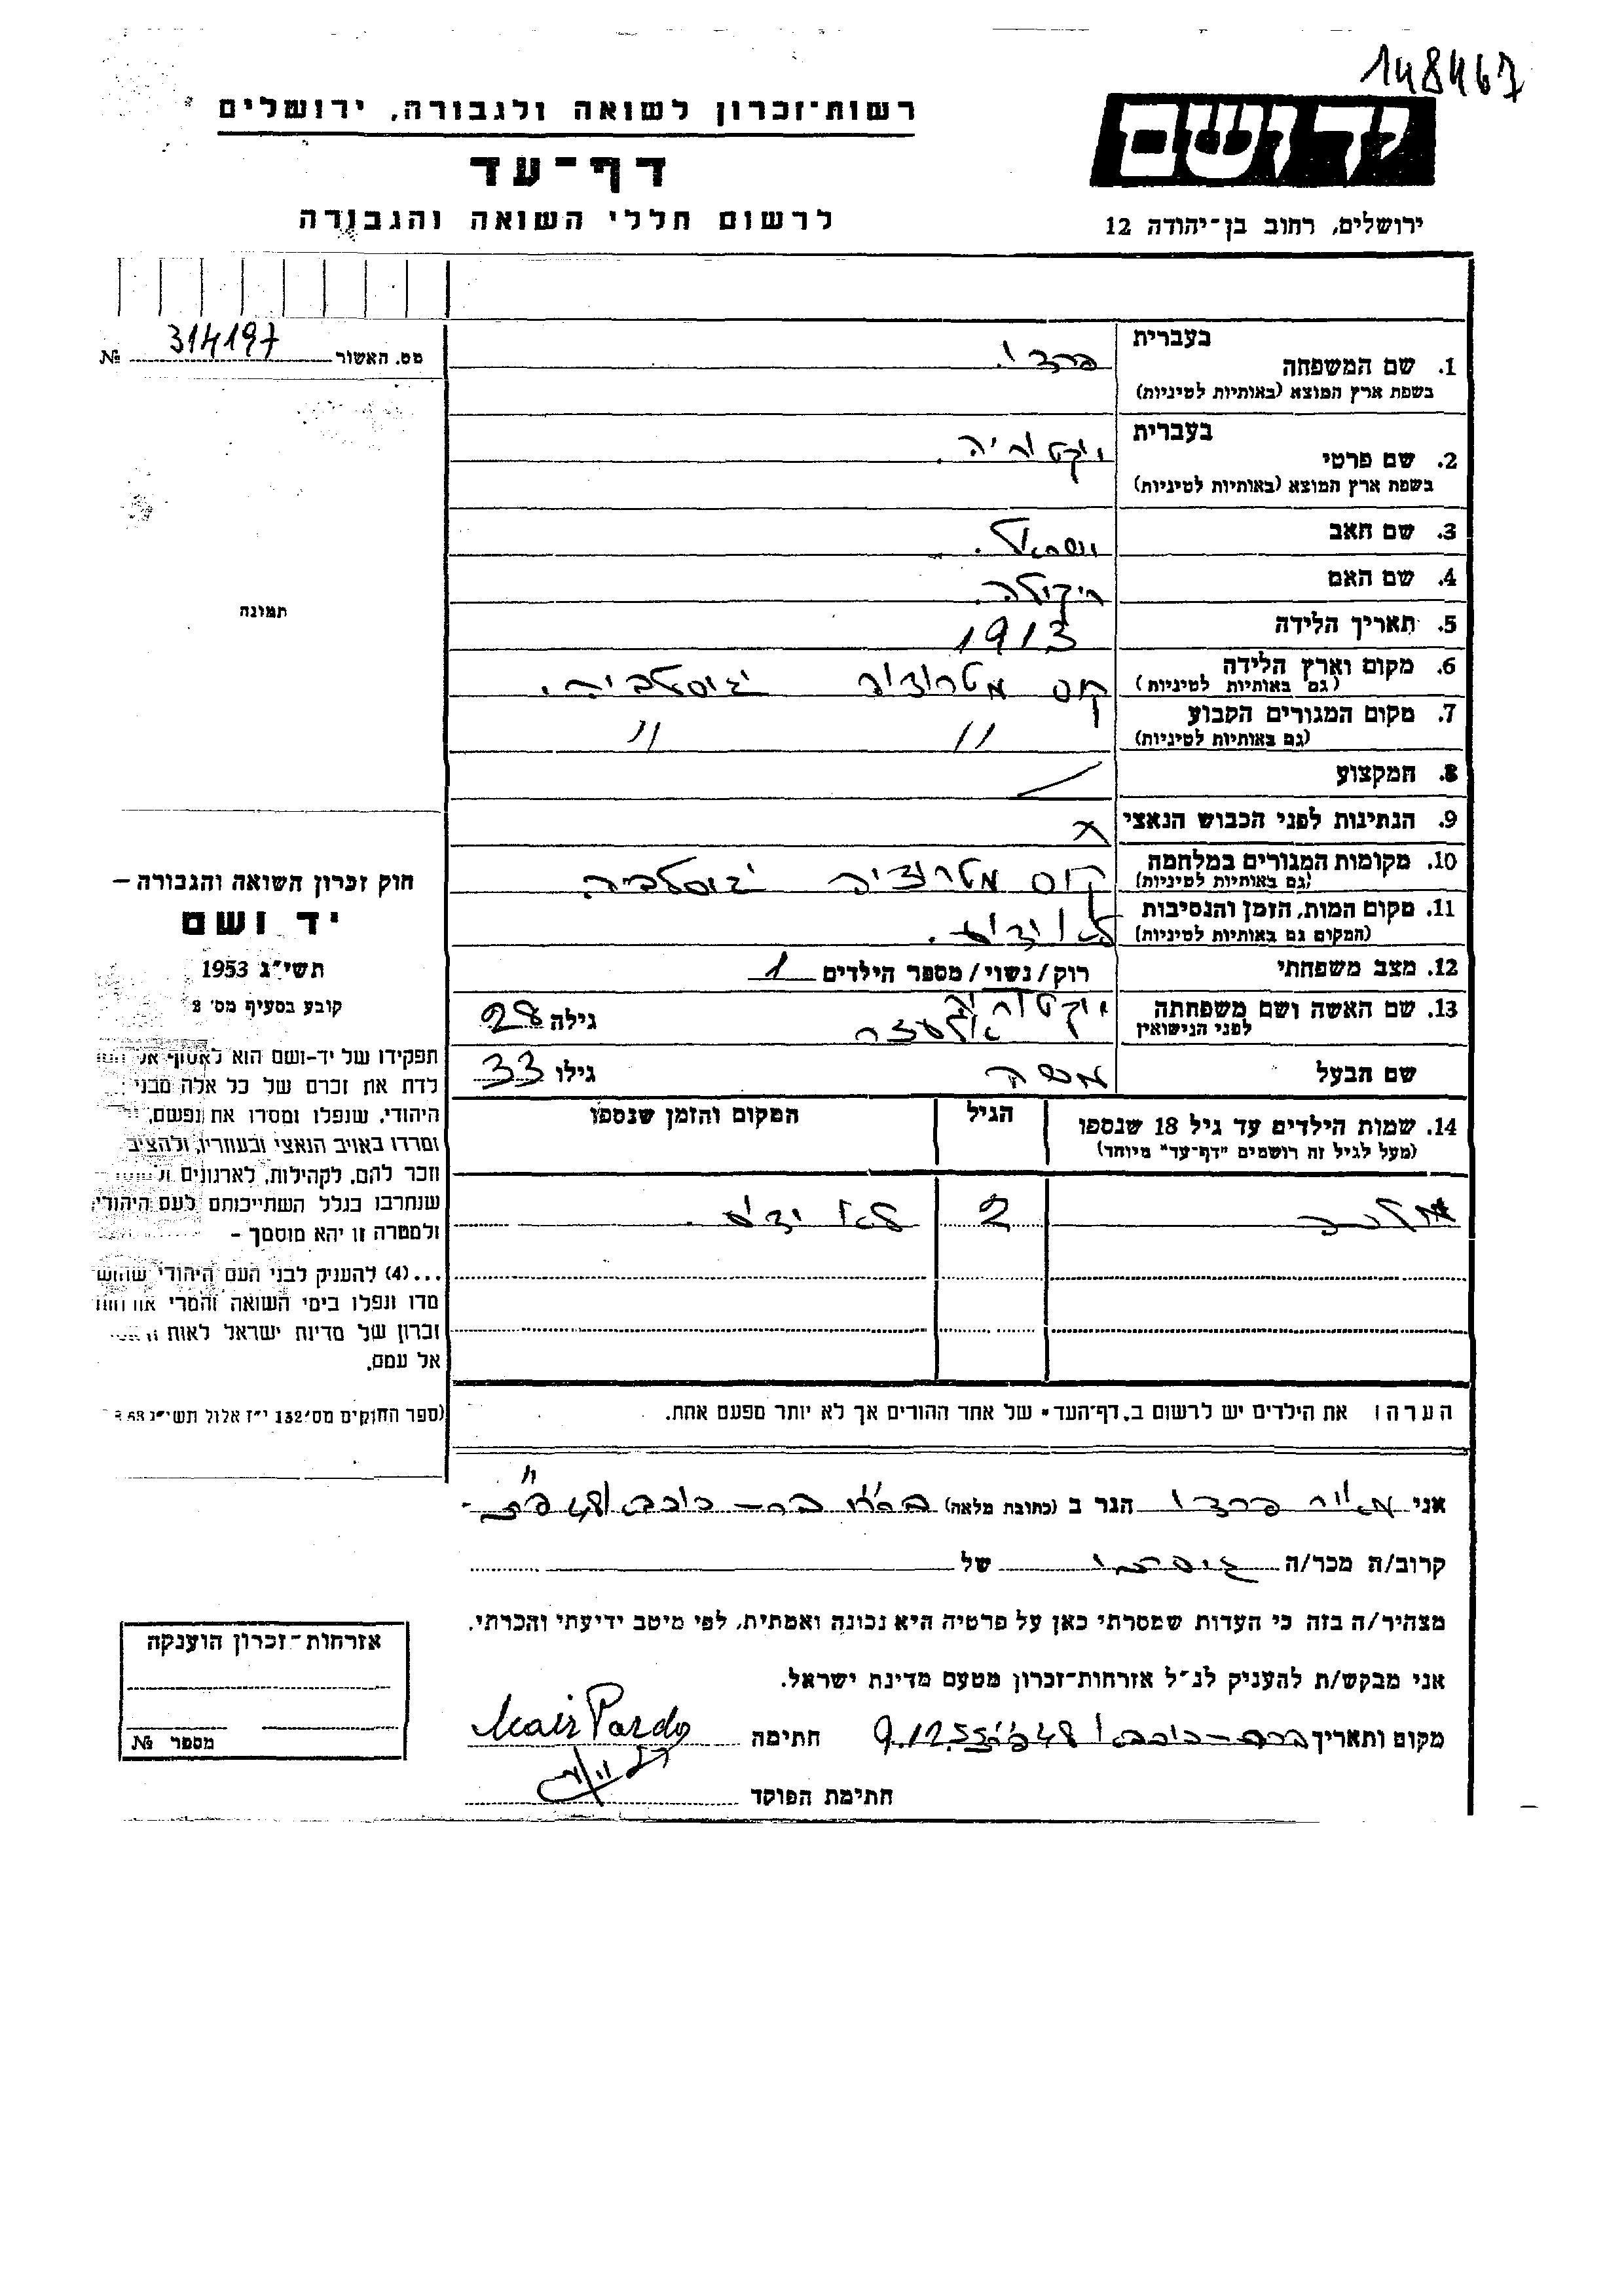 148467
רשות-זכרון לשואה ולגבורה, ירושלים
יד ושם
דף-עד
ירושלים, רחוב בן-יהודה 12
לרשום חללי השואה והגבורה
מס. האשור № 314197
בעברית
1. שם המשפחה פרדו.
בשפת ארץ המוצא (באותיות לטיניות)
בעברית
2. שם פרטי ויקטוריה.
בשפת ארץ המוצא (באותיות לטיניות)
3. שם האב
4. שם האם
5. תאריך הלידה 1913
6. מקום וארץ הלידה קוס מטרוציה יגוסלביה.
(גם באותיות לטיניות)
7. מקום המגורים הקבוע " "
(גם באותיות לטיניות)
8. המקצוע
9. הנתינות לפני הכבוש הנאצי x
10. מקומות המגורים במלחמה קוס מטרוציה יגוסלביה
(גם באותיות לטיניות)
11. מקום המות, הזמן והנסיבות לא ידוע.
(המקום גם באותיות לטיניות)
12. מצב משפחתי רוק/נשוי/מספר הילדים 1
13. שם האשה ושם משפחתה ויקטוריה גילה 28
לפני הנישואין
שם הבעל משה גילו 33
14. שמות הילדים עד גיל 18 שנספו הגיל המקום והזמן שנספו
(מעל לגיל זה רושמים "דף-עד" מיוחד)
2 לא ידוע.
הערה: את הילדים יש לרשום ב"דף-העד" של אחד ההורים אך לא יותר מפעם אחת.
תמונה
חוק זכרון השואה והגבורה –
יד ושם
תשי"ג 1953
קובע בסעיף מס' 2
תפקידו של יד-ושם הוא לאסוף אל
לדת את זכרם של כל אלה מבני
היהודי, שנפלו ומסרו את נפשם,
ומרדו באויב הנאצי ובעוזריו, ולהציב
וזכר להם, לקהילות, לארגונים
שנחרבו בגלל השתייכותם לעם היהודי
ולמטרה זו יהא מוסמך –
...(4) להעניק לבני העם היהודי
מדו ונפלו בימי השואה והמרי
זכרון של מדינת ישראל לאות
אל עמם.
(ספר החוקים מס' 132 י"ז אלול תשי"ג
אני מאיר פרדו הגר ב (כתובת מלאה)
קרוב/ה מכר/ה של
מצהיר/ה בזה כי העדות שמסרתי כאן על פרטיה היא נכונה ואמתית, לפי מיטב ידיעתי והכרתי.
אני מבקש/ת להעניק לנ"ל אזרחות-זכרון מטעם מדינת ישראל.
מקום ותאריך 9.12.55 חתימה Mair Pardo
חתימת הפוקד
אזרחות-זכרון הוענקה
מספר №